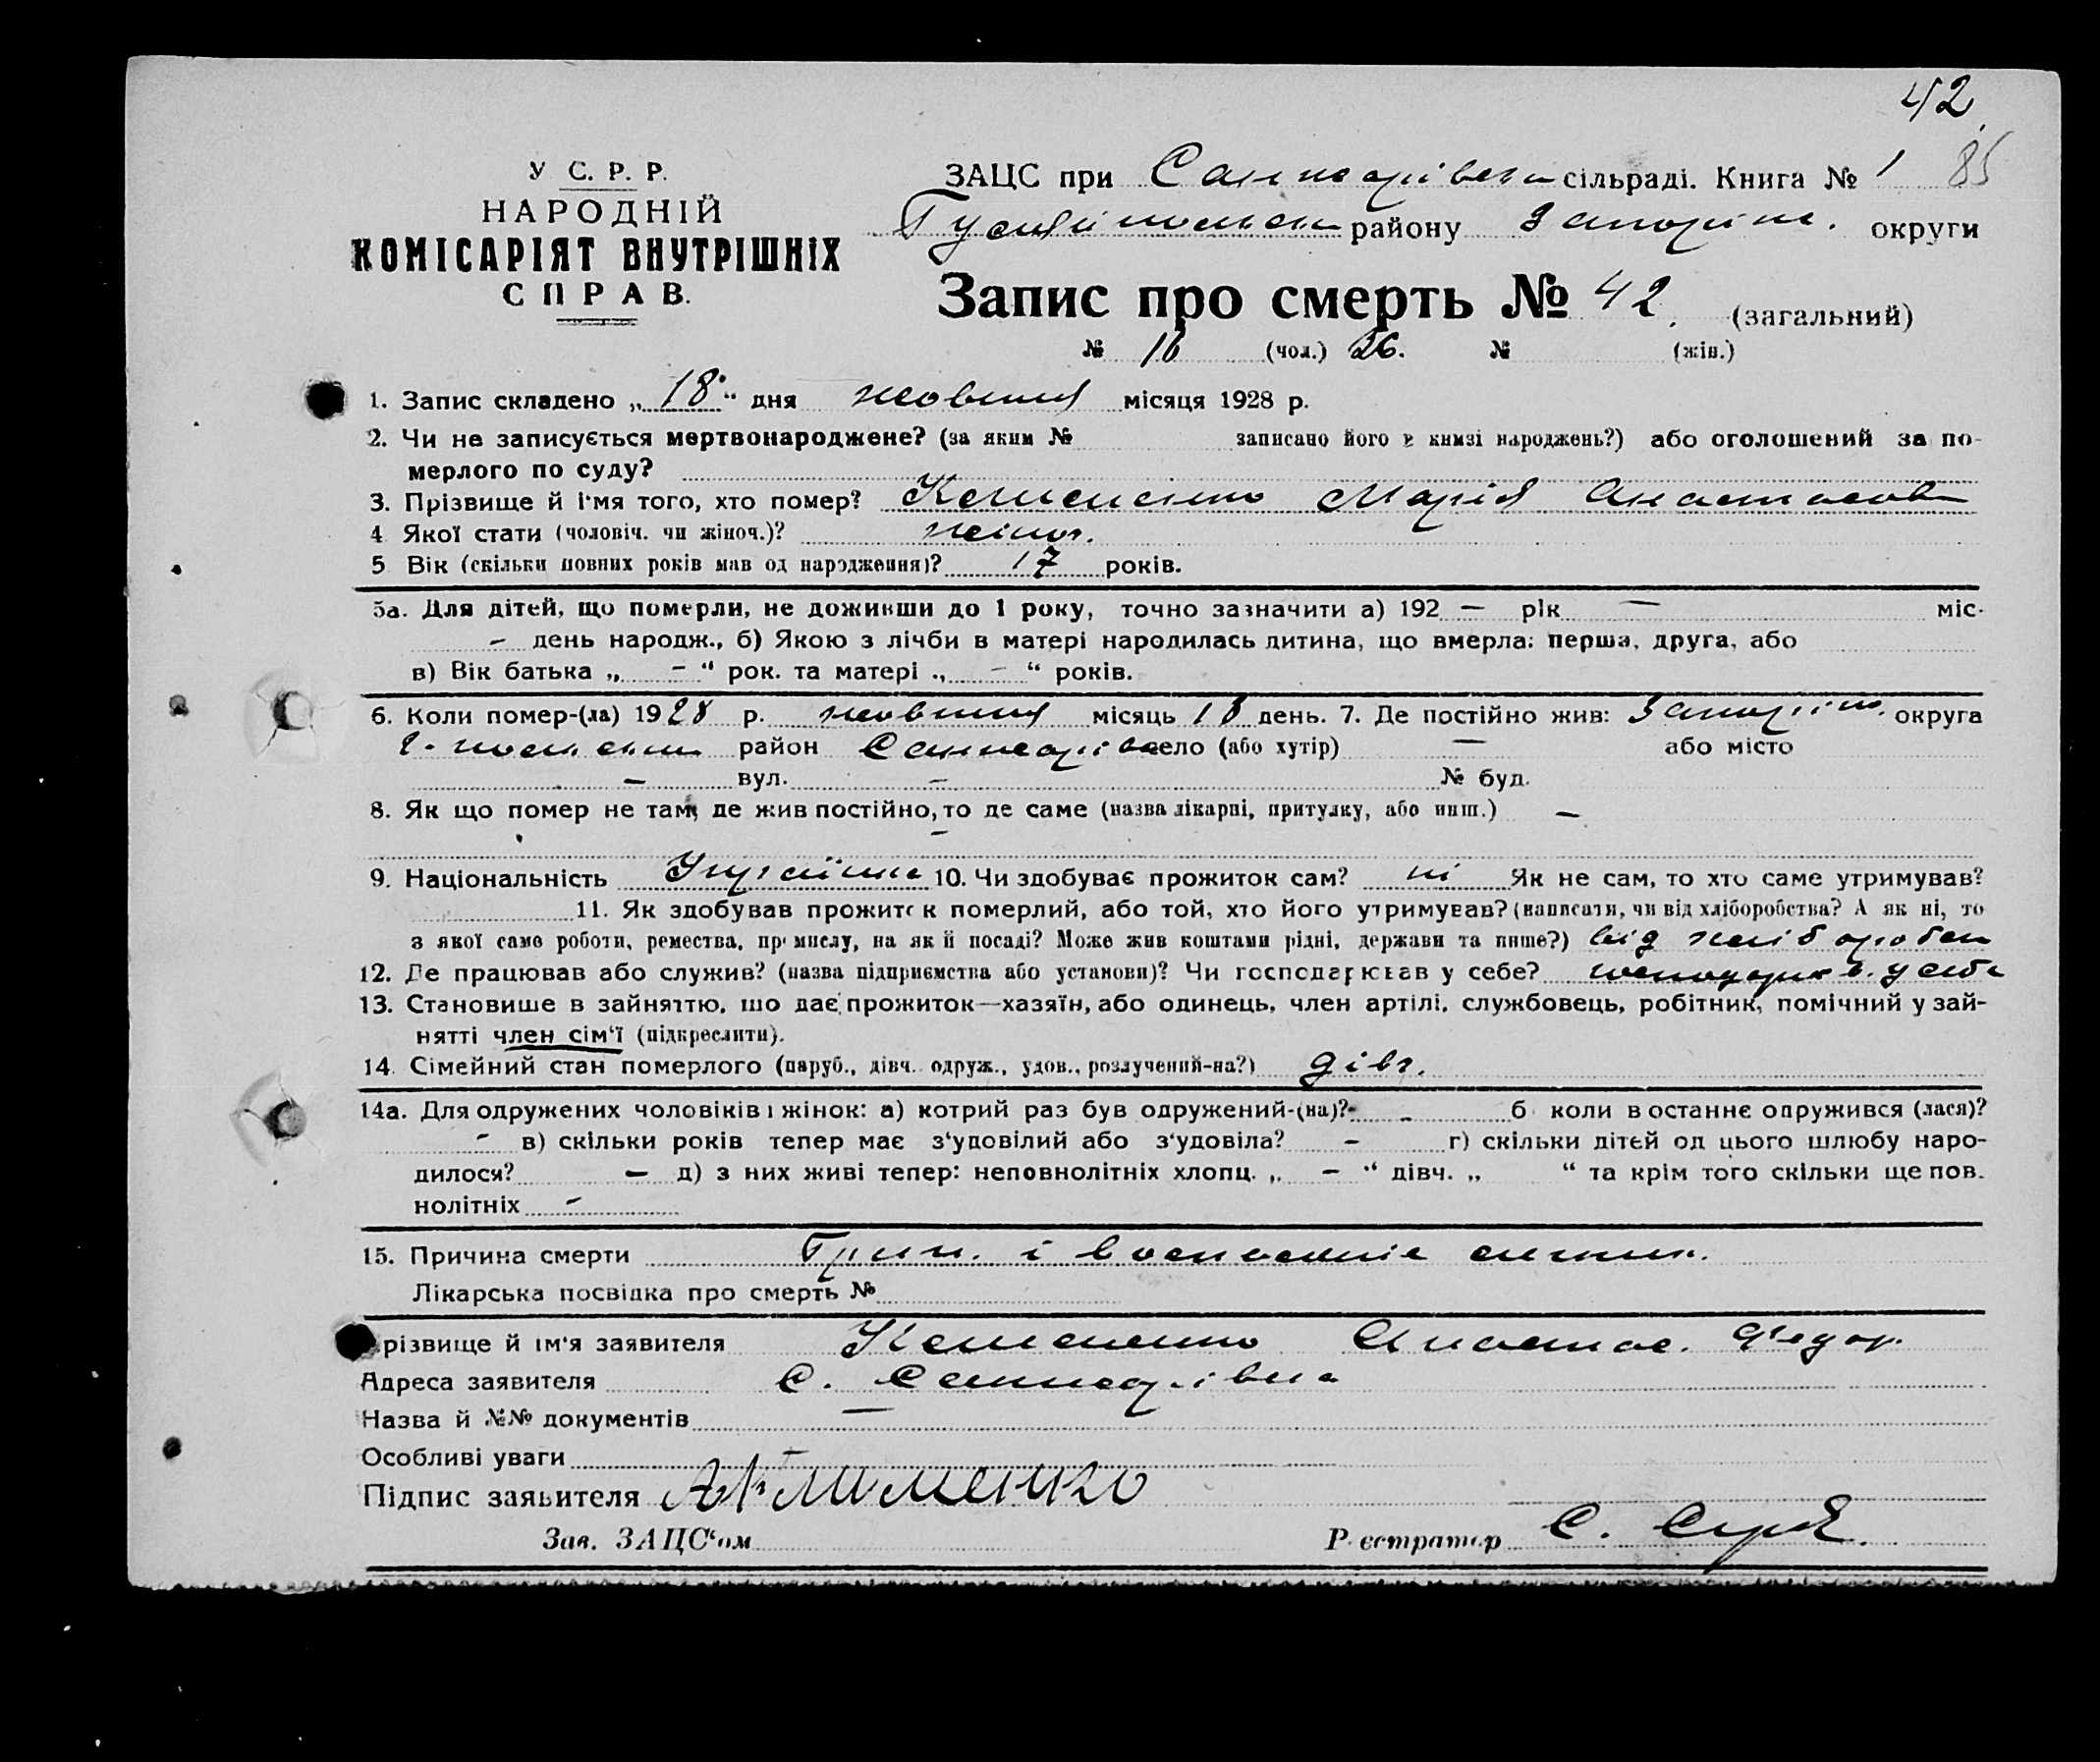 42
У С. Р. Р.
НАРОДНІЙ
КОМІСАРІЯТ ВНУТРІШНІХ
СПРАВ.
ЗАЦС при сільраді. Книга № 1 85
району Запоріж. округи
Запис про смерть № 42. (загальний)
№ 16 (чол.) 26. № (жін.)
1. Запис складено „18“ дня жовтня місяця 1928 р.
2. Чи не записується мертвонароджене? (за яким № записано його в книзі народжень?) або оголошений за по-
мерлого по суду?
3. Прізвище й ім'я того, хто помер? Клименко Марія Анастасов
4 Якої стати (чоловіч. чи жіноч.)? жіноч.
5 Вік (скільки повних років мав од народження)? 17 років.
5а. Для дітей, що померли, не доживши до 1 року, точно зазначити а) 192 — рік — міс.
- день народж., б) Якою з лічби в матері народилась дитина, що вмерла: перша, друга, або
в) Вік батька „ - “ рок. та матері „ - “ років.
6. Коли помер-(ла) 1928 р. жовтня місяць 18 день. 7. Де постійно жив: Запоріж. округа
район село (або хутір) — або місто
– вул. – № буд.
8. Як що помер не там, де жив постійно, то де саме (назва лікарні, притулку, або инш.) –
–
9. Національність Українка 10. Чи здобуває прожиток сам? ні Як не сам, то хто саме утримував?
11. Як здобував прожиток померлий, або той, хто його утримував? (написати, чи від хліборобства? А як ні, то
з якої саме роботи, ремества, промислу, на якій посаді? Може жив коштами рідні, держави та инше?) від хлібороб
12. Де працював або служив? (назва підприємства або установи)? Чи господарював у себе? господарюв. у себе
13. Становище в зайняттю, що дає прожиток—хазяїн, або одинець, член артілі, службовець, робітник, помічний у зай-
нятті член сім‘ї (підкреслити).
14. Сімейний стан померлого (паруб., дівч. одруж., удов., розлучений-на?) дівч.
14а. Для одружених чоловіків і жінок: а) котрий раз був одружений-(на)? - б коли в останнє одружився (лася)?
- в) скільки років тепер має з‘удовілий або з‘удовіла? – г) скільки дітей од цього шлюбу наро-
дилося? – д) з них живі тепер: неповнолітніх хлопц. „ – “ дівч. „ “ та крім того скільки ще пов.
нолітніх -
15. Причина смерти Грип. і воспаленіе
Лікарська посвідка про смерть №
Прізвище й ім‘я заявителя Клименко Анастас. Федор.
Адреса заявителя с.
Назва й №№ документів —
Особливі уваги –
Підпис заявителя А Клименко
Зав. ЗАЦС‘ом Реєстратор С.